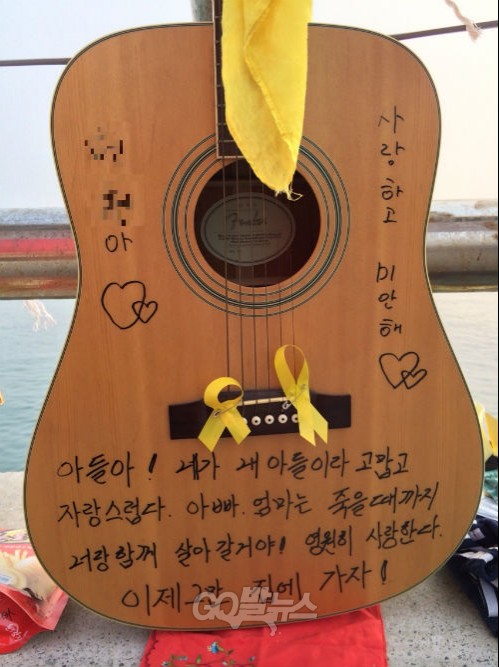 아
사랑하고 미안해
Fender
아들아! 네가 내 아들이라 고맙고
자랑스럽다. 아빠.엄마는 죽을때까지
너랑함께 살아갈거야! 영원히 사랑한다.
이제그만 집에 가자!
GO발뉴스